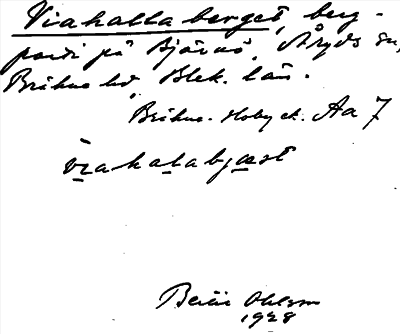 Viahalla berget, berg-
parti på Björnö, Åryds sn,
Bräkne hd, Blek. län.
Bräkne-Hoby ek. Aa 7
viahalabjæst
Ohlsson
1928